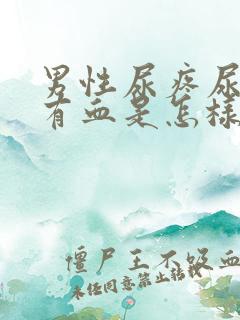 男性尿疼尿
有血是怎样
僵尸王不吸血
未经同意禁止转载